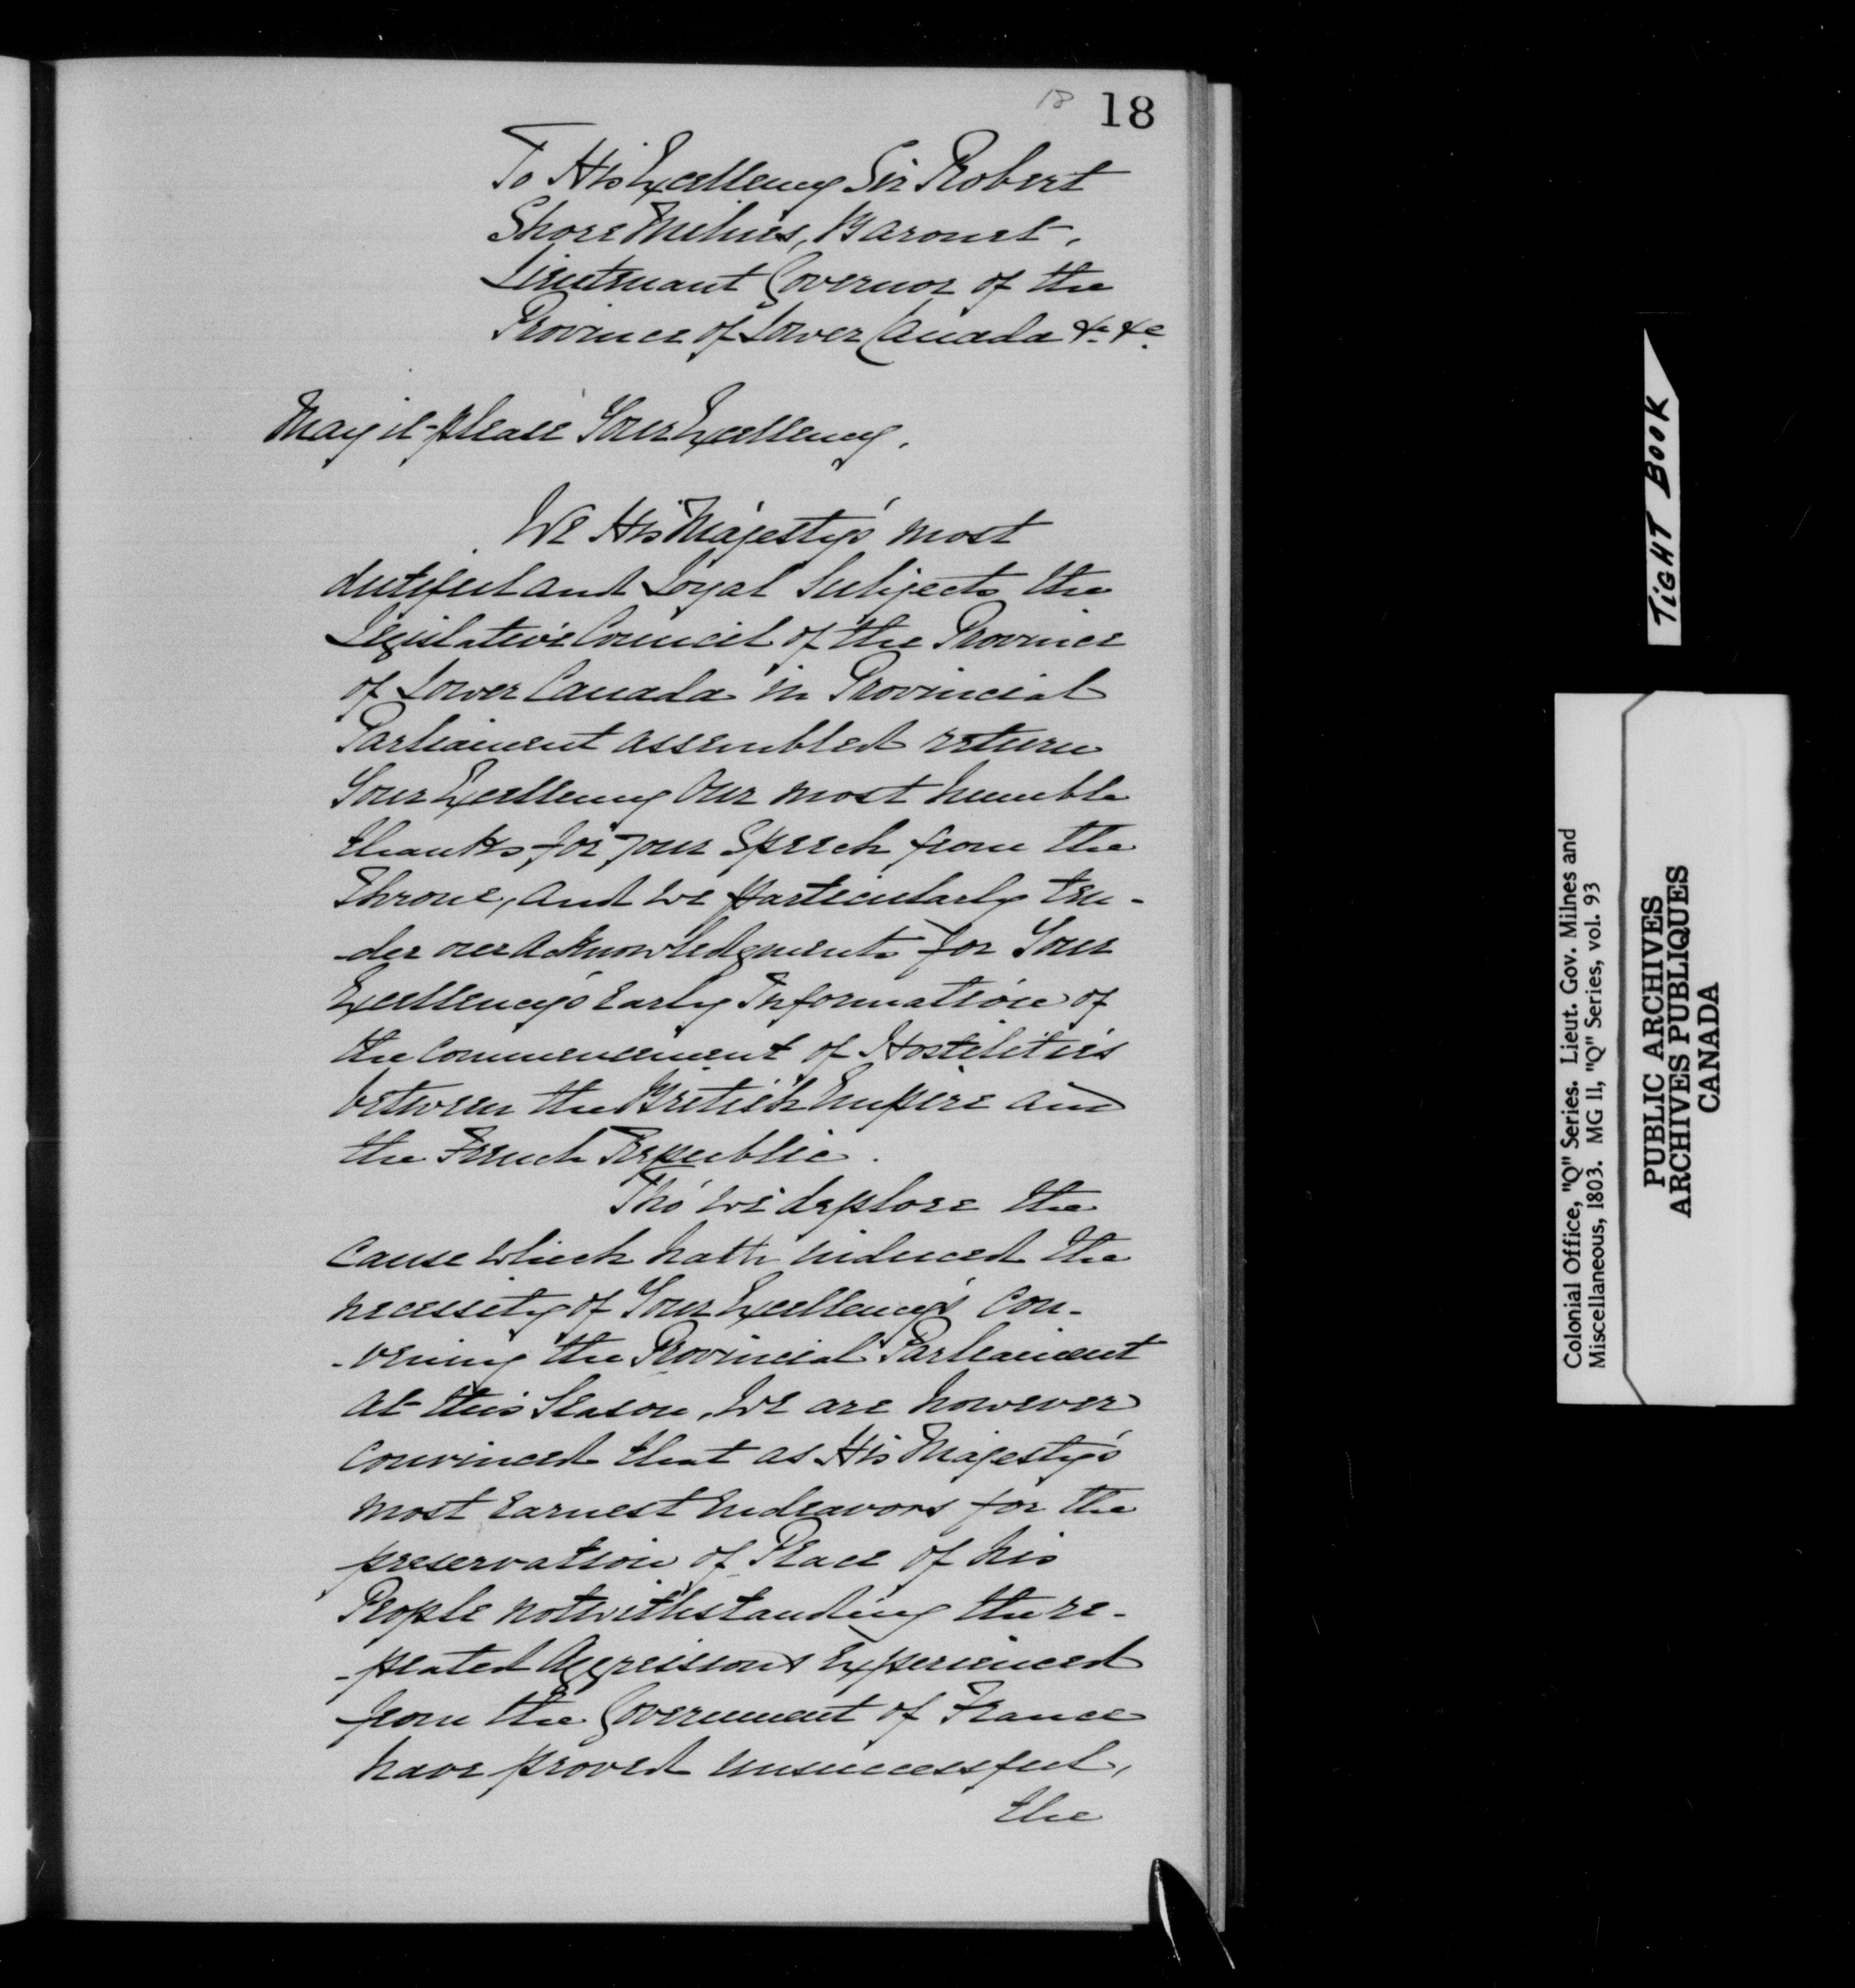 18 18
To His Excellency Sir Robert
Shore Milnes, Baronet,
Lieutenant Governor of the
Province of Lower Canada &c &c
May it please Your Excellency.
We His Majesty's most
dutiful and Loyal Subjects the
Legislative Council of the Province
of Lower Canada in Provincial
Parliament assembled return
Your Excellency Our most humble
thanks for your Speech from the
Throne, and we particularly ten-
-der our Acknowledgments for Your
Excellency's early Information of
the Commencement of Hostilities
between the British Empire and
the French Republic.
Tho' we deplore the
Cause which hath induced the
necessity of Your Excellency's Con-
-vening the Provincial Parliament
at this Season, We are however
Convinced that as His Majesty's
most earnest Endeavors for the
preservation of Peace of his
People notwithstanding the re-
-peated Aggressions Experienced
from the Government of France
have proved unsuccessful,
the
TIGHT BOOK
Colonial Office, "Q" Series. Lieut. Gov. Milnes and
Miscellaneous, 1803. MG 11, "Q" Series, vol. 93
PUBLIC ARCHIVES
ARCHIVES PUBLIQUES
CANADA